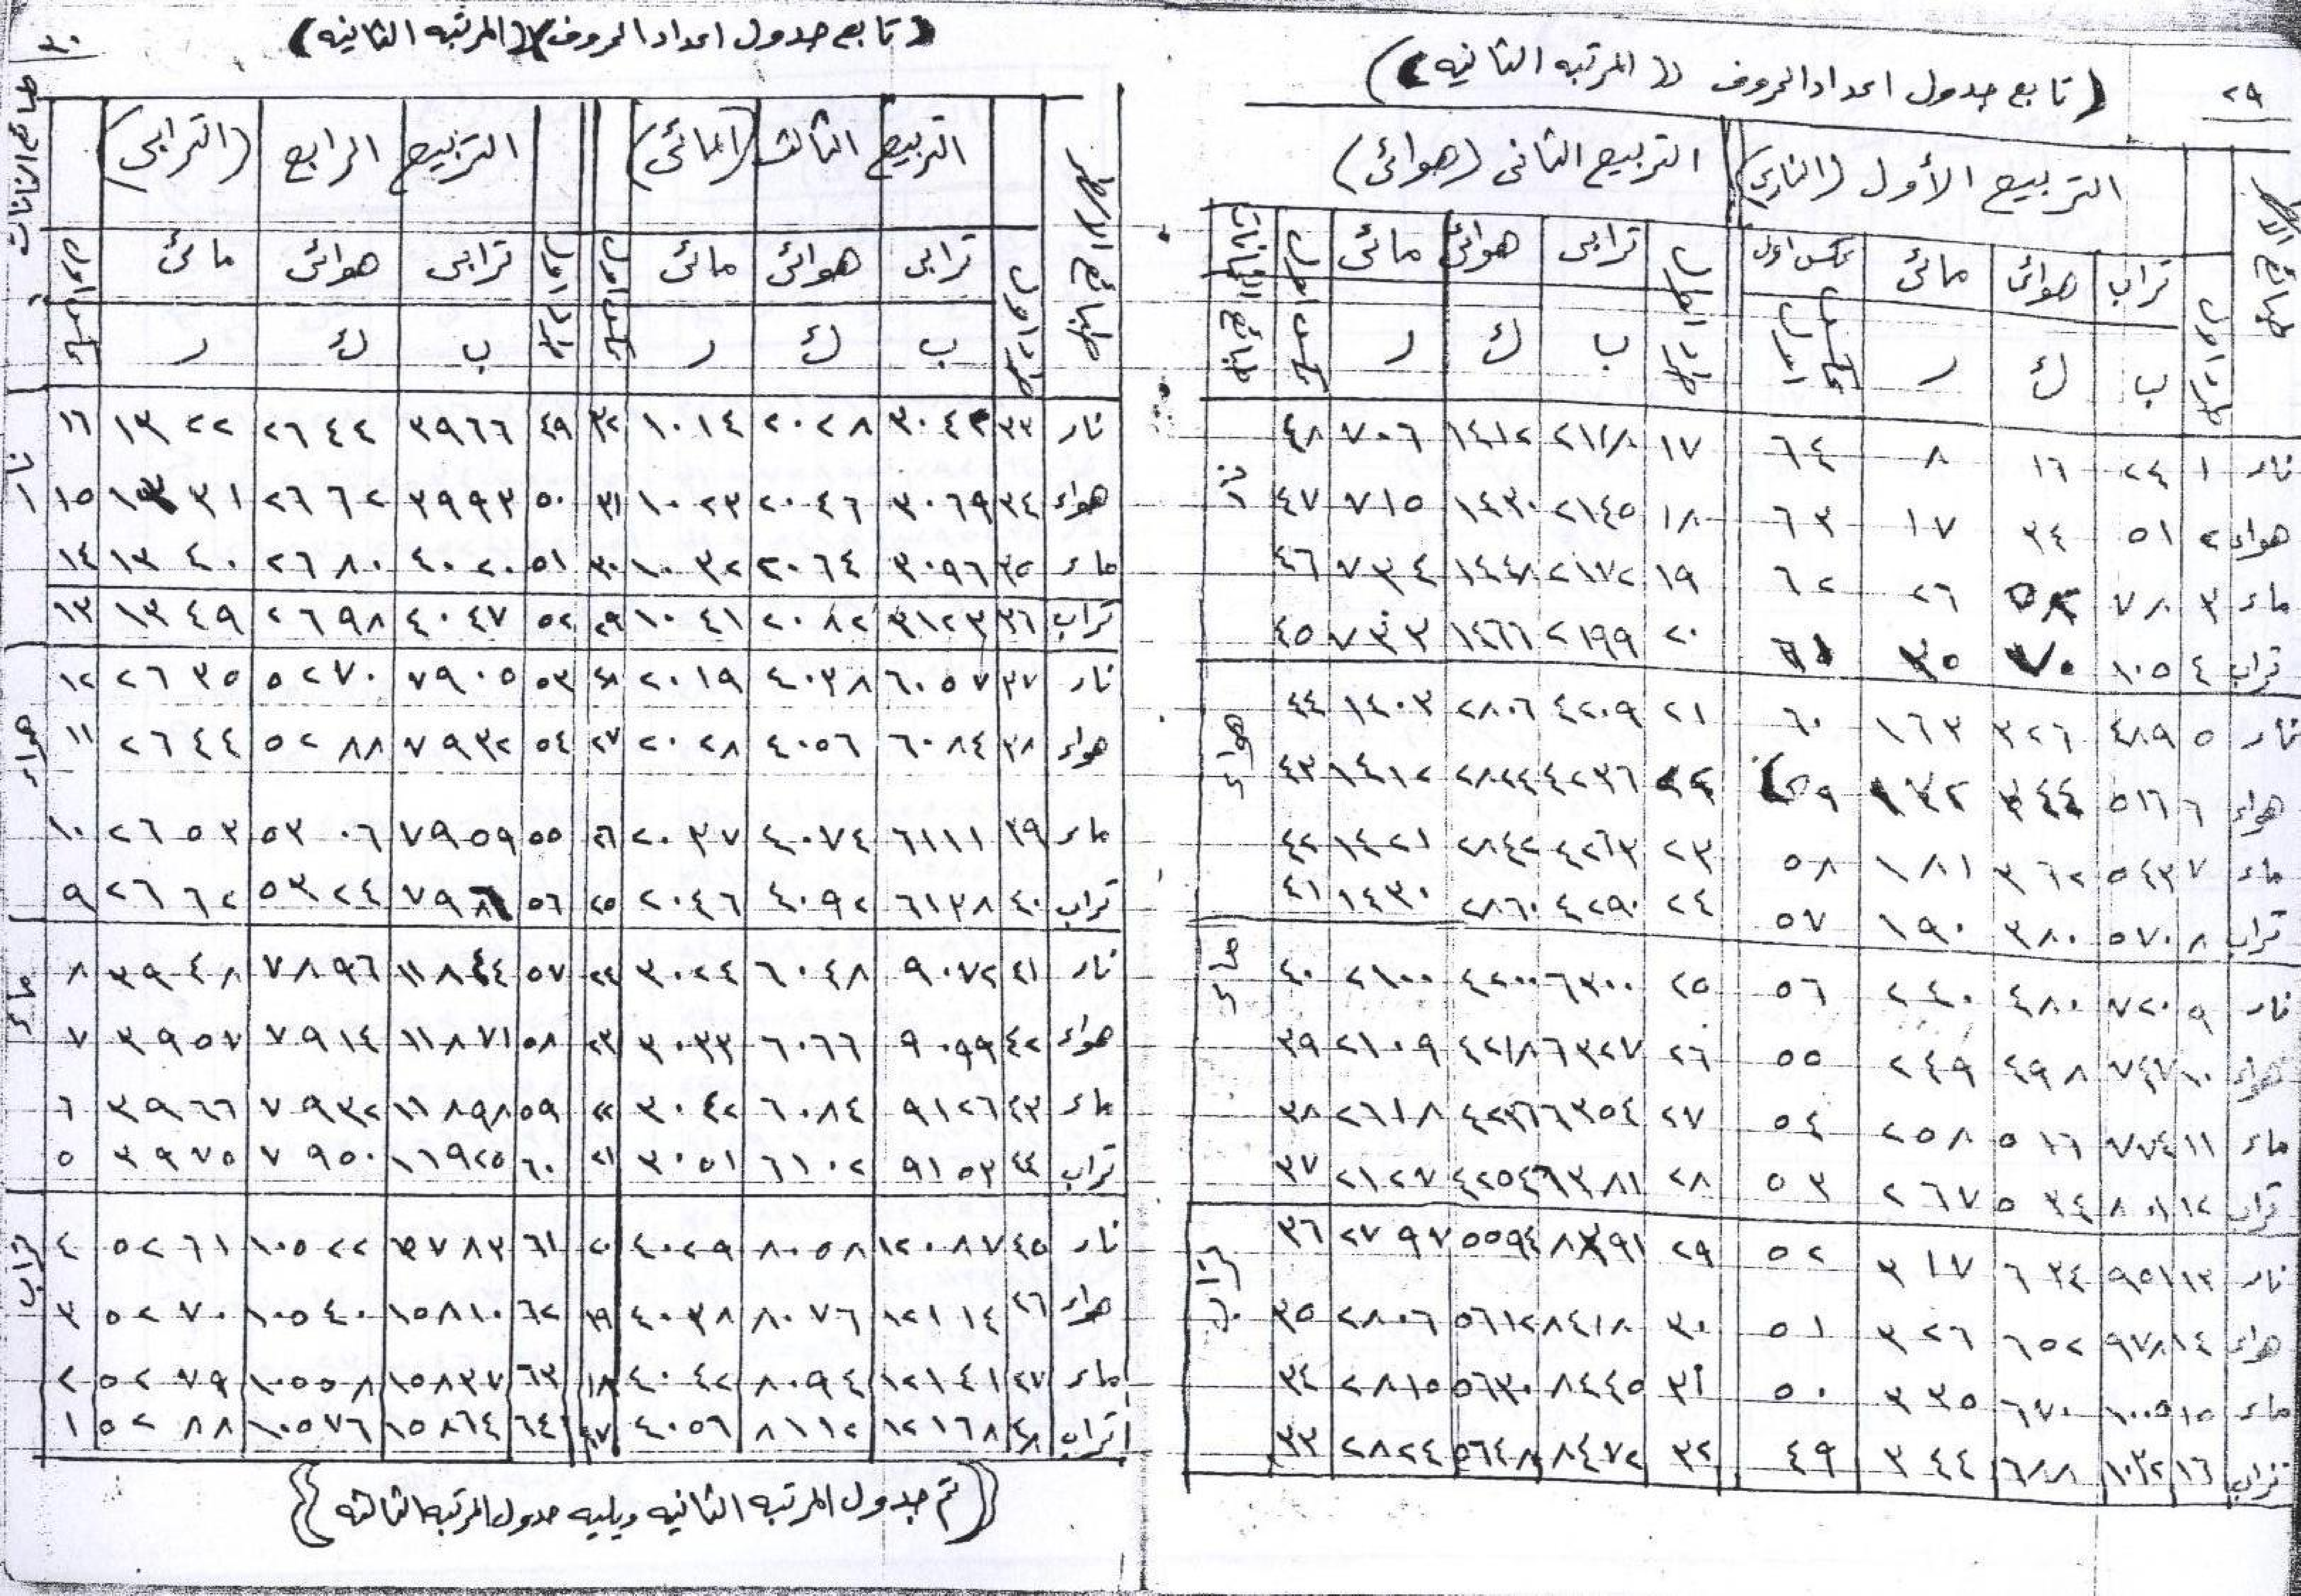 ٢٩
(تابع جدول اعداد الحروف ((المرتبه الثانيه))
التربيع الأول (الناري) التربيع الثانى (هوائى)
تراب هوائى مائى عكس اول ترابى هوائى مائى
ب ك ر ب ك ر
نار ١ ٢٤ ١٦ ٨ ٦٤ ١٧ ٢١١٨ ١٤١٢ ٧٠٦ ٤٨ نار
هواء ٢ ٥١ ٣٤ ١٧ ٦٣ ١٨ ٢١٤٥ ١٤٣٠ ٧١٥ ٤٧
ماء ٣ ٧٨ ٥٢ ٢٦ ٦٢ ١٩ ٢١٧٢ ١٤٤٨ ٧٣٤ ٤٦
تراب ٤ ١٠٥ ٧٠ ٣٥ ٦١ ٢٠ ٢١٩٩ ١٤٦٦ ٧٣٣ ٤٥
نار ٥ ٤٨٩ ٣٢٦ ١٦٣ ٦٠ ٢١ ٤٢٠٩ ٢٨٠٦ ١٤٠٣ ٤٤ هواء
هواء ٦ ٥١٦ ٣٤٤ ١٧٢ ٥٩ ٢٢ ٤٢٣٦ ٢٨٢٤ ١٤١٢ ٤٣
ماء ٧ ٥٤٣ ٣٦٢ ١٨١ ٥٨ ٢٣ ٤٢٦٣ ٢٨٤٢ ١٤٢١ ٤٢
تراب ٨ ٥٧٠ ٣٨٠ ١٩٠ ٥٧ ٢٤ ٤٢٩٠ ٢٨٦٠ ١٤٣٠ ٤١
نار ٩ ٧٢٠ ٤٨٠ ٢٤٠ ٥٦ ٢٥ ٦٣٠٠ ٤٢٠٠ ٢١٠٠ ٤٠ ماء
هواء ١٠ ٧٤٧ ٤٩٨ ٢٤٩ ٥٥ ٢٦ ٦٣٢٧ ٤٢١٨ ٢١٠٩ ٣٩
ماء ١١ ٧٧٤ ٥١٦ ٢٥٨ ٥٤ ٢٧ ٦٣٥٤ ٤٢٣٦ ٢٦١٨ ٣٨
تراب ١٢ ٨٠١ ٥٣٤ ٢٦٧ ٥٣ ٢٨ ٦٣٨١ ٤٢٥٤ ٢١٢٧ ٣٧
نار ١٣ ٩٥١ ٦٣٤ ٣١٧ ٥٢ ٢٩ ٨٣٩١ ٥٥٩٤ ٢٧٩٧ ٣٦ تراب
هواء ١٤ ٩٧٨ ٦٥٢ ٣٢٦ ٥١ ٣٠ ٨٤١٨ ٥٦١٢ ٢٨٠٦ ٣٥
ماء ١٥ ١٠٠٥ ٦٧٠ ٣٣٥ ٥٠ ٣١ ٨٤٤٥ ٥٦٣٠ ٢٨١٥ ٣٤
تراب ١٦ ١٠٣٢ ٦٨٨ ٣٤٤ ٤٩ ٣٢ ٨٤٧٢ ٥٦٤٨ ٢٨٢٤ ٣٣
٣٠
(تابع جدول اعداد الحروف)((المرتبه الثانيه)
طبائع الانات
التربيع الثالث (المائى) التربيع الرابع (الترابى)
ترابى هوائى مائى ترابى هوائى مائى
ب ك ر ب ك ر
نار ٣٣ ٣٠٤٢ ٢٠٢٨ ١٠١٤ ٣٢ ٤٩ ٣٩٦٦ ٢٦٤٤ ١٣٢٢ ١٦ نار
هواء ٣٤ ٣٠٦٩ ٢٠٤٦ ١٠٢٣ ٣١ ٥٠ ٣٩٩٣ ٢٦٦٢ ١٣٣١ ١٥
ماء ٣٥ ٣٠٩٦ ٢٠٦٤ ١٠٣٢ ٣٠ ٥١ ٤٠٢٠ ٢٦٨٠ ١٣٤٠ ١٤
تراب ٣٦ ٣١٢٣ ٢٠٨٢ ١٠٤١ ٢٩ ٥٢ ٤٠٤٧ ٢٦٩٨ ١٣٤٩ ١٣
نار ٣٧ ٦٠٥٧ ٤٠٣٨ ٢٠١٩ ٢٨ ٥٣ ٧٩٠٥ ٥٢٧٠ ٢٦٣٥ ١٢ هواء
هواء ٣٨ ٦٠٨٤ ٤٠٥٦ ٢٠٢٨ ٢٧ ٥٤ ٧٩٣٢ ٥٢٨٨ ٢٦٤٤ ١١
ماء ٣٩ ٦١١١ ٤٠٧٤ ٢٠٣٧ ٢٦ ٥٥ ٧٩٥٩ ٥٣٠٦ ٢٦٥٣ ١٠
تراب ٤٠ ٦١٣٨ ٤٠٩٢ ٢٠٤٦ ٢٥ ٥٦ ٧٩٨٦ ٥٣٢٤ ٢٦٦٢ ٩
نار ٤١ ٩٠٧٢ ٦٠٤٨ ٣٠٢٤ ٢٤ ٥٧ ١١٨٤٤ ٧٨٩٦ ٣٩٤٨ ٨ ماء
هواء ٤٢ ٩٠٩٩ ٦٠٦٦ ٣٠٣٣ ٢٣ ٥٨ ١١٨٧١ ٧٩١٤ ٣٩٥٧ ٧
ماء ٤٣ ٩١٢٦ ٦٠٨٤ ٣٠٤٢ ٢٢ ٥٩ ١١٨٩٨ ٧٩٣٢ ٣٩٦٦ ٦
تراب ٤٤ ٩١٥٣ ٦١٠٢ ٣٠٥١ ٢١ ٦٠ ١١٩٢٥ ٧٩٥٠ ٣٩٧٥ ٥
نار ٤٥ ١٢٠٨٧ ٨٠٥٨ ٤٠٢٩ ٢٠ ٦١ ١٥٧٨٣ ١٠٥٢٢ ٥٢٦١ ٤ تراب
هواء ٤٦ ١٢١١٤ ٨٠٧٦ ٤٠٣٨ ١٩ ٦٢ ١٥٨١٠ ١٠٥٤٠ ٥٢٧٠ ٣
ماء ٤٧ ١٢١٤١ ٨٠٩٤ ٤٠٤٢ ١٨ ٦٣ ١٥٨٣٧ ١٠٥٥٨ ٥٢٧٩ ٢
تراب ٤٨ ١٢١٦٨ ٨١١٢ ٤٠٥٦ ١٧ ٦٤ ١٥٨٦٤ ١٠٥٧٦ ٥٢٨٨ ١
((تم جدول المرتبه الثانيه ويليه جدول المرتبه الثالثه))